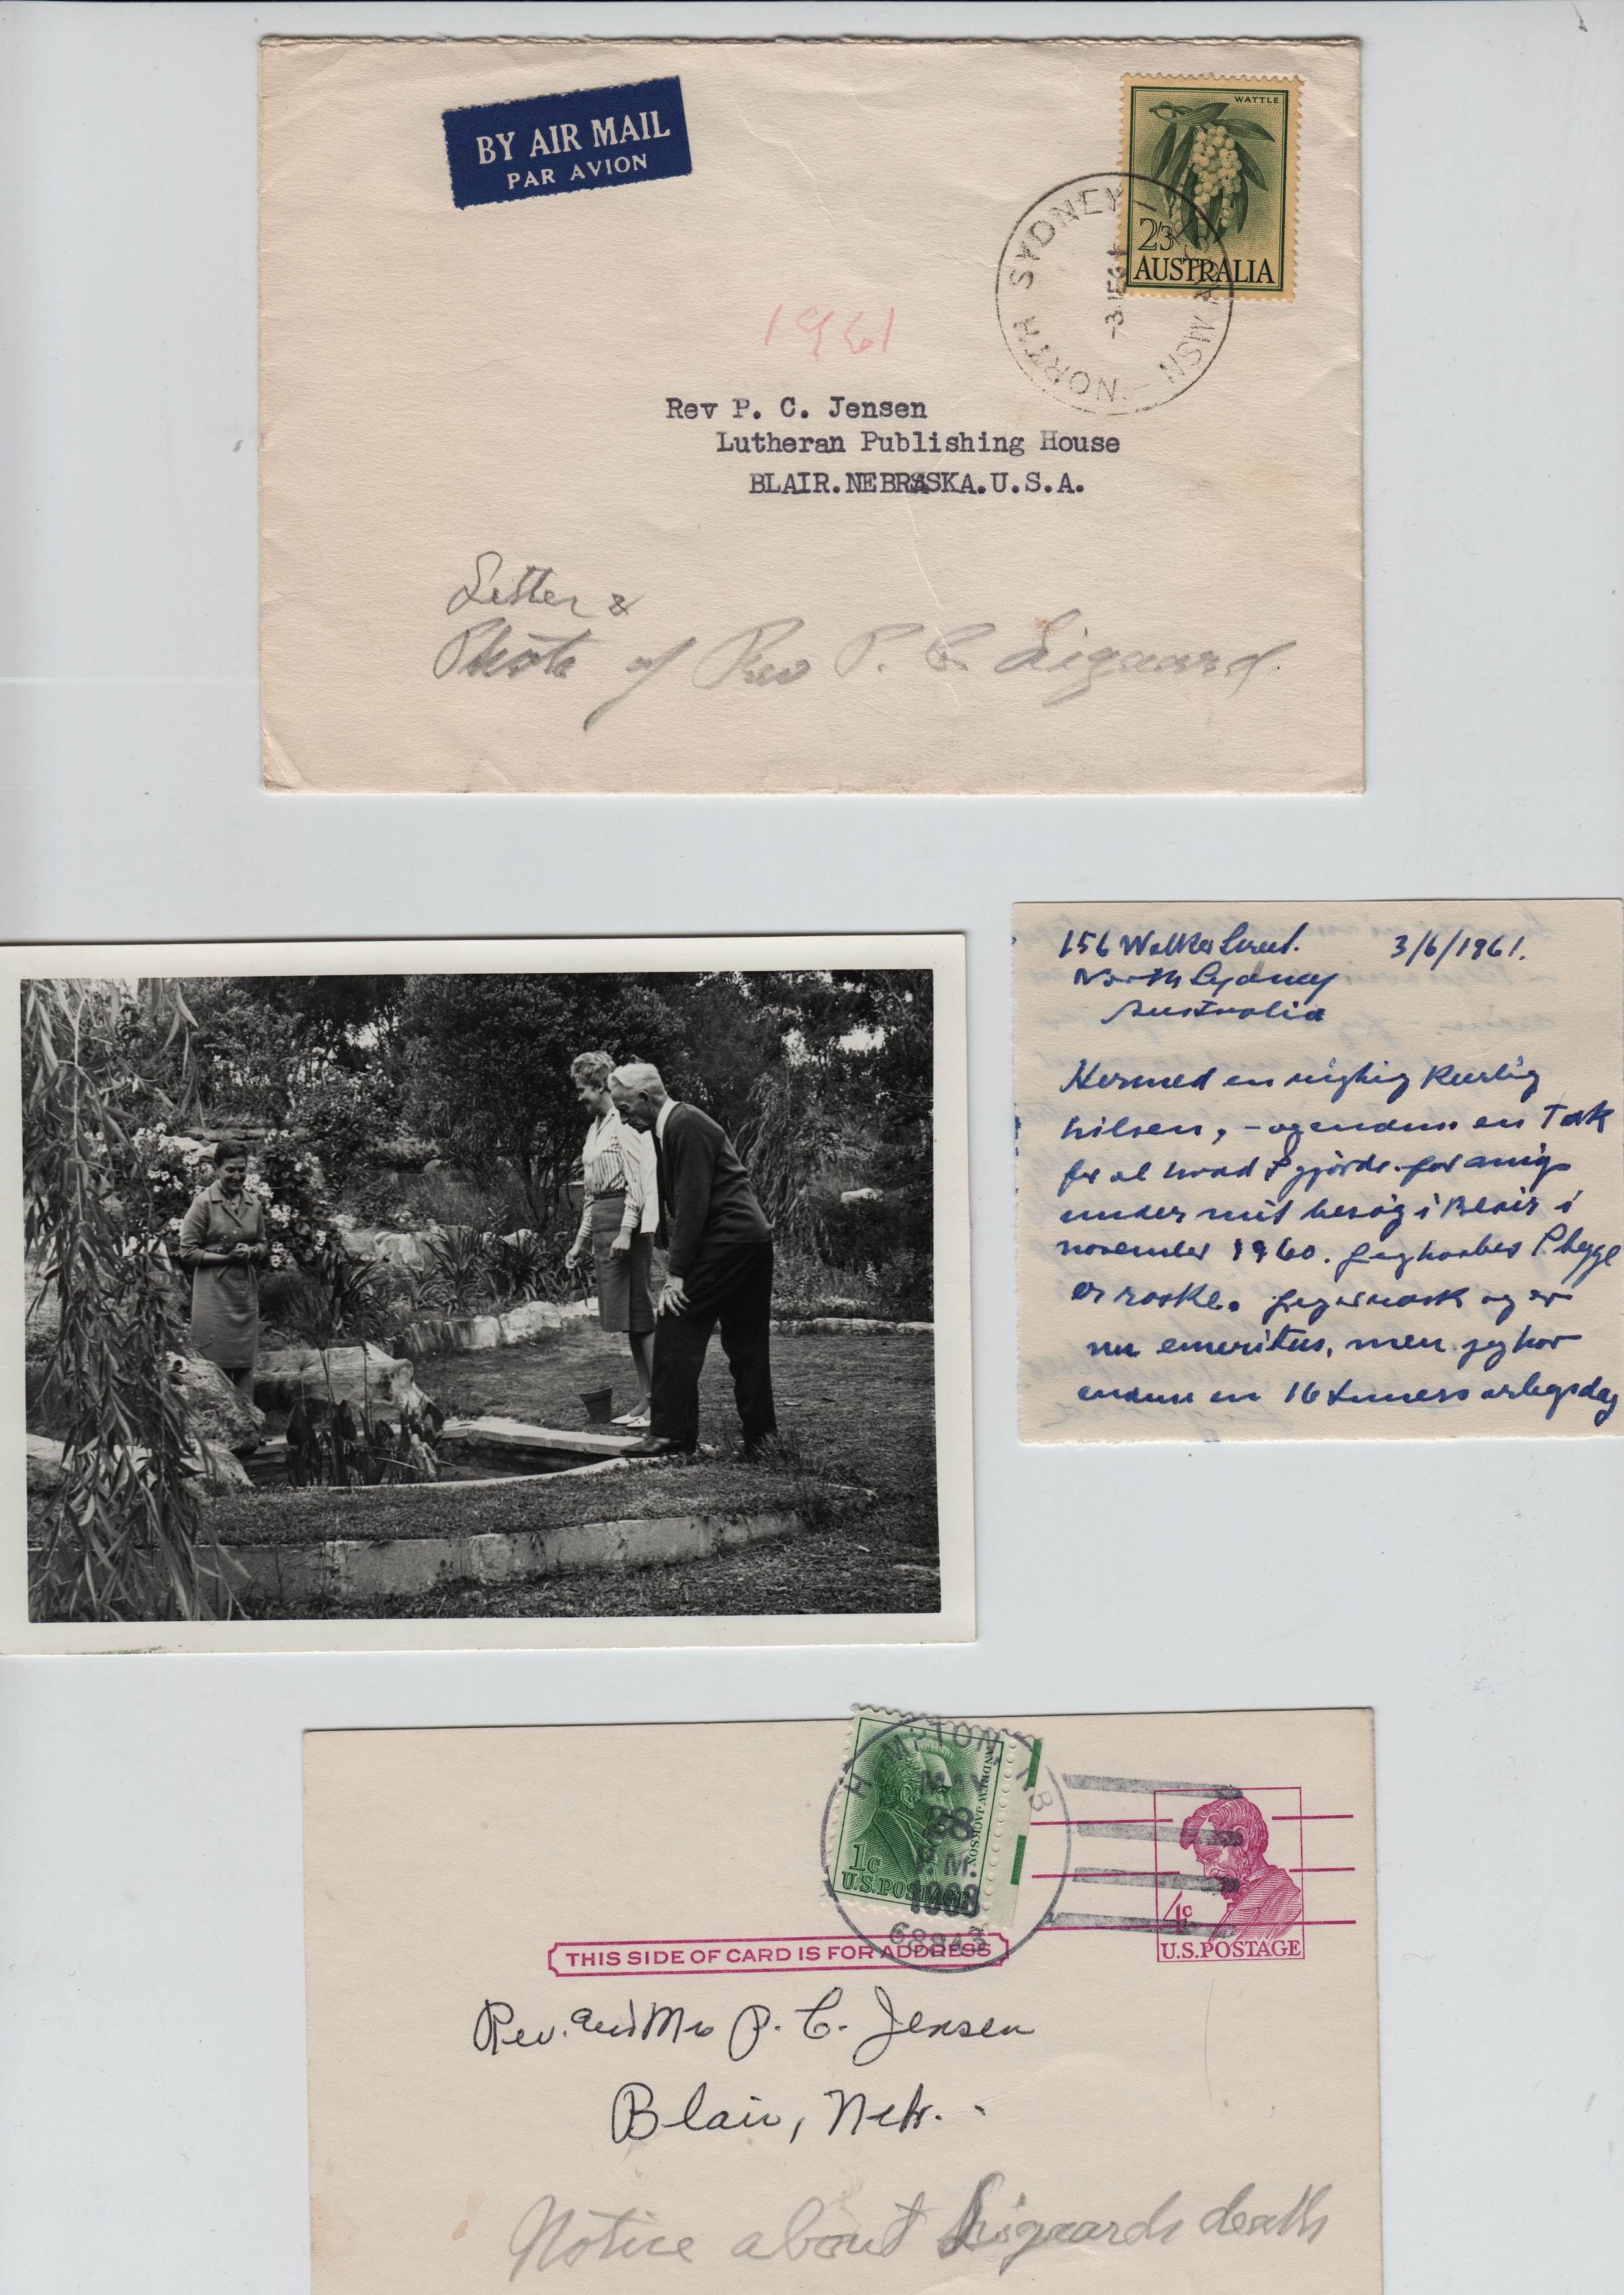 BY AIR MAIL
PAR AVION
WATTLE
2/3
AUSTRALIA
NORTH SYDNEY
1961
Rev P. C. Jensen
Lutheran Publishing House
BLAIR.NEBRASKA.U.S.A.
Letter &
Photo of Rev P. C. Ligaard.
156 Walker Street. 3/6/1961.
North Sydney
Australia
Hermed en rigtig kærlig
hilsen, – og endnu en Tak
for al hvad I gjorde for mig
under mit besøg i Blair i
november 1960. Jeg haaber I begge
er raske. Jeg er rask og er
nu emeritus, men jeg har
endnu en 16 timers arbejdsdag
ANDREW JACKSON
1c
U.S. POSTAGE
HAMPTON
MAY
28
1968
68843
4c
U.S. POSTAGE
THIS SIDE OF CARD IS FOR ADDRESS
Rev. and Mrs P. C. Jensen
Blair, Nebr.
Notice about Ligaards death